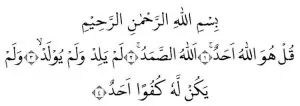 بِسْمِ اللهِ الرَّحْمٰنِ الرَّحِيْمِ
قُلْ هُوَ اللهُ اَحَدٌۚ ﴿١﴾ اَللهُ الصَّمَدُۚ ﴿٢﴾ لَمْ يَلِدْ وَلَمْ يُوْلَدْۙ ﴿٣﴾ وَلَمْ
يَكُنْ لَّهٗ كُفُوًا اَحَدٌ ﴿٤﴾